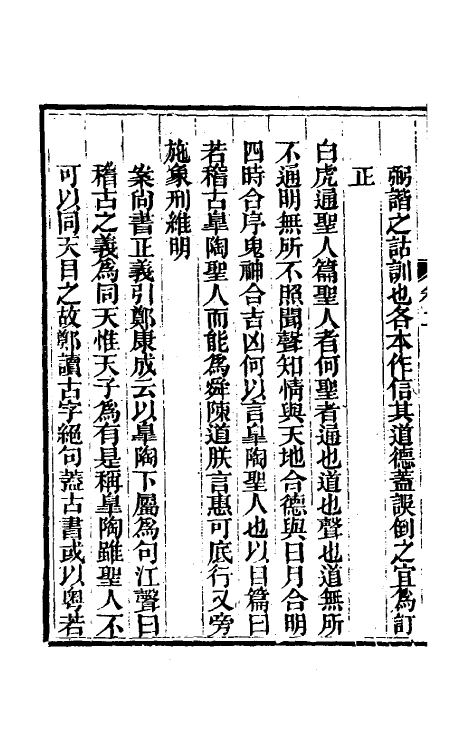 弼諧之詁訓也各本作信其道德蓋誤倒之宜爲訂
正
白虎通聖人篇聖人者何聖者通也道也聲也道無所
不通明無所不照聞聲知情與天地合德與日月合明
四時合序鬼神合吉凶何以言皐陶聖人也以目篇曰
若稽古皐陶聖人而能爲舜陳道朕言惠可底行又旁
施象刑維明
案尚書正義引鄭康成云以皐陶下屬爲句江聲曰
稽古之義爲同天惟天子爲有是稱皐陶雖聖人不
可以同天目之故鄭讀古字絕句蓋古書或以粵若